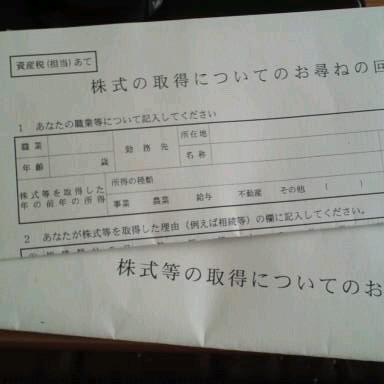 資産税(担当)あて
株式の取得についてのお尋ねの回
1 あなたの職業等について記入してください
職業 勤務先 所在地
年齢 歳 名称
株式等を取得した 所得の種類
年の前年の所得 事業 農業 給与 不動産 その他 ( )
2 あなたが株式等を取得した理由(例えば相続等)の欄に記入してください。
株式等の取得についてのお